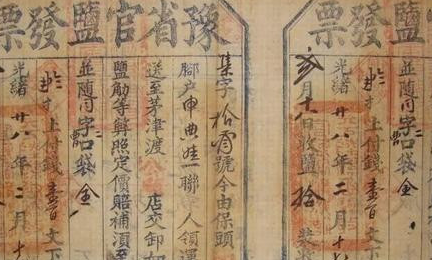 鹽發票
並隨付字口袋全
上付錢壹百文下
光緒廿八年二月十
月十八日收鹽拾
豫省官鹽發票
集字拾號今由保頭
腳户申典娃一聯人領運
送至茅津渡店交卸如
鹽觔等弊照定價賠補須至
並隨付字口袋全
上付錢壹百文下
光緒廿八年二月十